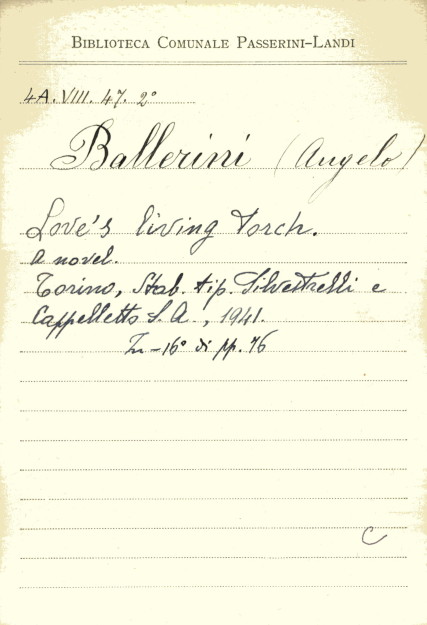 BIBLIOTECA COMUNALE PASSERINI-LANDI
4A.VIII.47.2°
Ballerini (Angelo)
Love's living torch.
A novel.
Torino, Stab. tip. Silvestrelli e
Cappelletto S.A., 1941.
In-16° di pp. 76
C